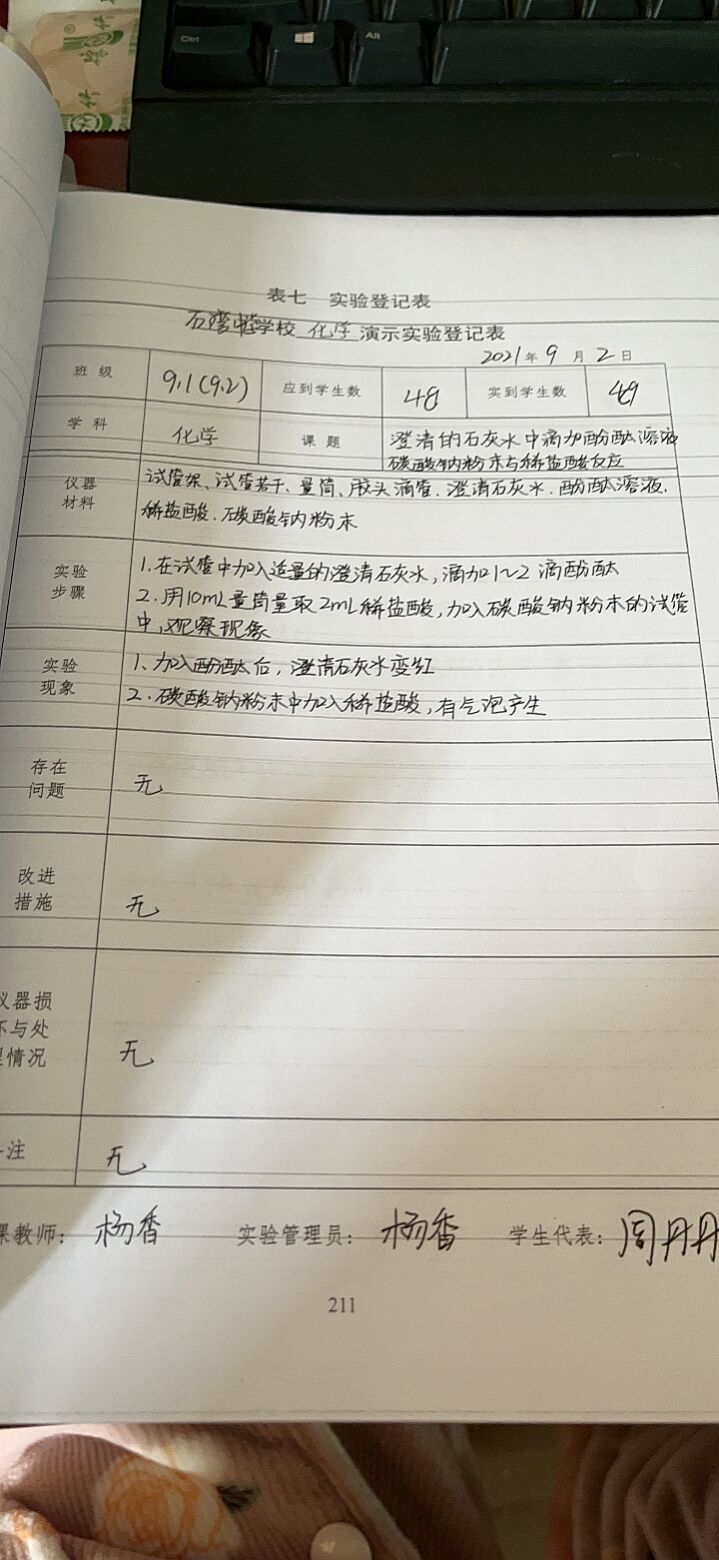 Ctrl
Alt
表七 实验登记表
石湾中学学校 化学 演示实验登记表
2021年 9 月 2 日
班 级 9.1(9.2) 应到学生数 48 实到学生数 49
学 科 化学 课 题 澄清的石灰水中滴加酚酞溶液
碳酸钠粉末与稀盐酸反应
仪器 试管架、试管若干、量筒、胶头滴管、澄清石灰水、酚酞溶液、
材料 稀盐酸、碳酸钠粉末
实验 1.在试管中加入适量的澄清石灰水,滴加1~2滴酚酞
步骤 2.用10mL量筒量取2mL稀盐酸,加入碳酸钠粉末的试管
中,观察现象
实验 1、加入酚酞后,澄清石灰水变红
现象 2.碳酸钠粉末中加入稀盐酸,有气泡产生
存在
问题 无
改进
措施 无
仪器损
坏与处
理情况 无
注 无
课教师: 杨香 实验管理员: 杨香 学生代表: 周丹丹
211